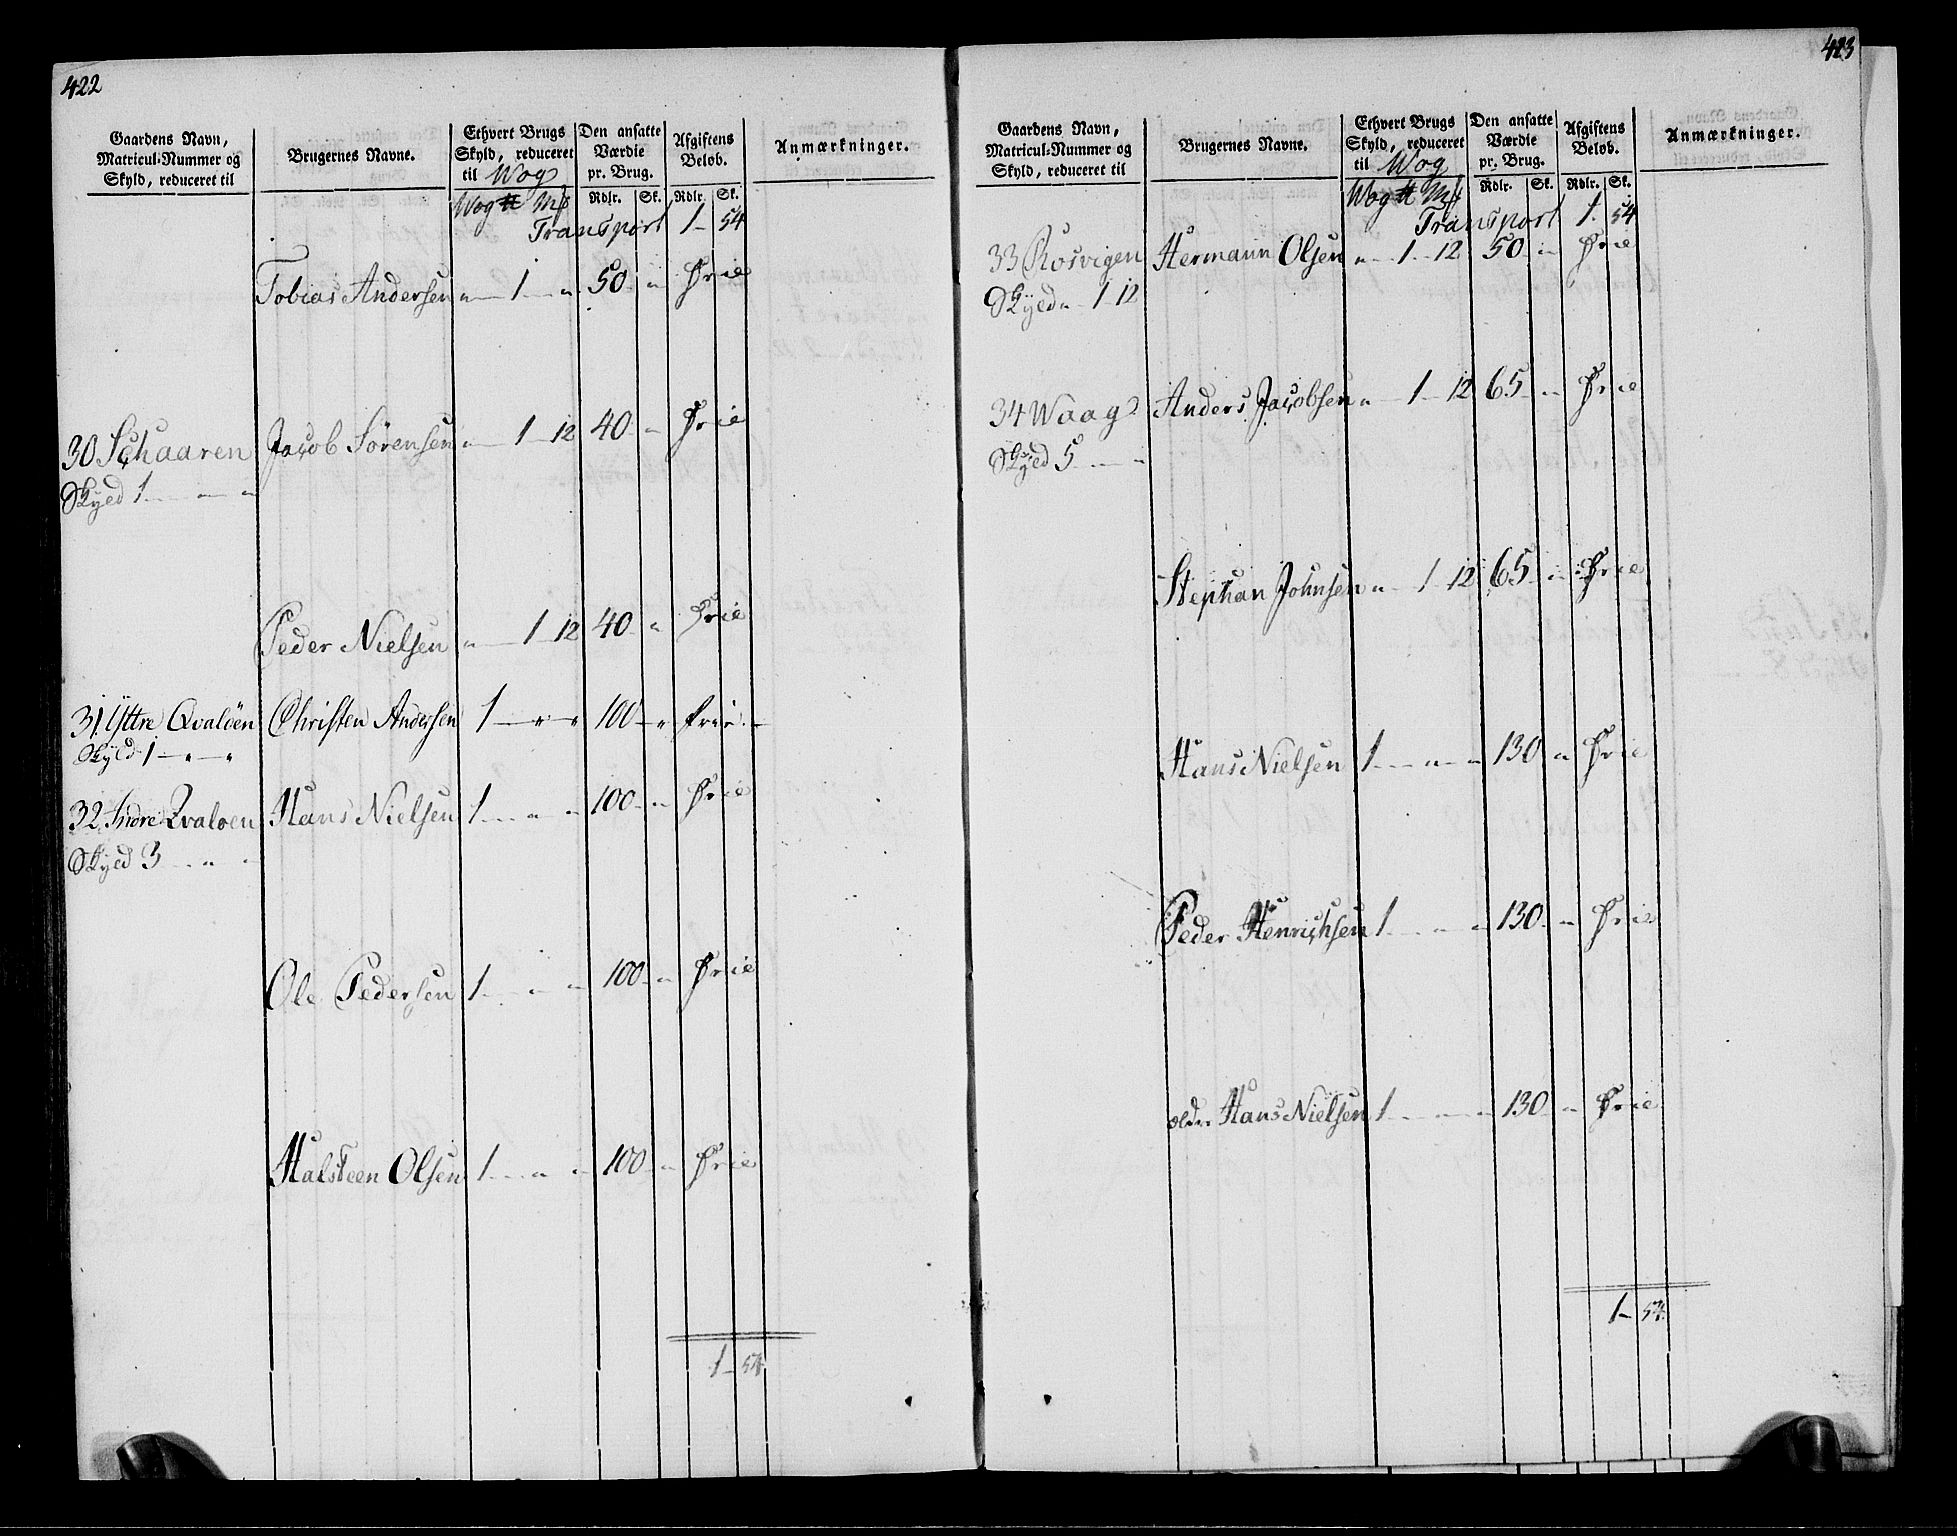 422
Gaardens Navn, Matricul-Nummer og Skyld, reduceret til | Brugernes Navne. | Ethvert Brugs Skyld, reduceret til Wog | Den ansatte Værdie pr. Brug. | Afgiftens Beløb. | Anmærkninger.
Wog ℔ Mk | Rdlr. | Sk. | Rdlr. | Sk.
Transport 1 - 54
Tobias Andersen " - 1 - " 50 - " Frie
30 Schaaren Jacob Sørensen " - 1 - 12 40 - " Frie
Skyld 1 - " - "
Peder Nielsen " - 1 - 12 40 - " Frie
31. Yttre Qvaløen Christen Andersen 1 - " - " 100 - " frie. -
Skyld 1 - " - "
32 Indre Qvaløen Hans Nielsen 1 - " - " 100 - " Frie
Skyld 3 - " - "
Ole Pedersen 1 - " - " 100 - " Frie
Halsteen Olsen 1 - " - " 100 - " Frie
1 - 54
423
Gaardens Navn, Matricul-Nummer og Skyld, reduceret til | Brugernes Navne. | Ethvert Brugs Skyld, reduceret til Wog | Den ansatte Værdie pr. Brug. | Afgiftens Beløb. | Anmærkninger.
Wog ℔ Mk | Rdlr. | Sk. | Rdlr. | Sk.
Transport 1. 54
33 Rosvigen Hermann Olsen " - 1 - 12 50 - " Frie
Skyld " - 1 - 12
34 Waag Anders Jacobsen " - 1 - 12 65 - " Frie
Skyld 5 - " - "
Stephan Johnsen " - 1 - 12 65 - " Frie
Hans Nielsen 1 - " - " 130 - " Frie
Peder Henrichsen 1 - " - " 130 - " Frie
oldr. Hans Nielsen 1 - " - " 130 - " Frie
1 - 54.